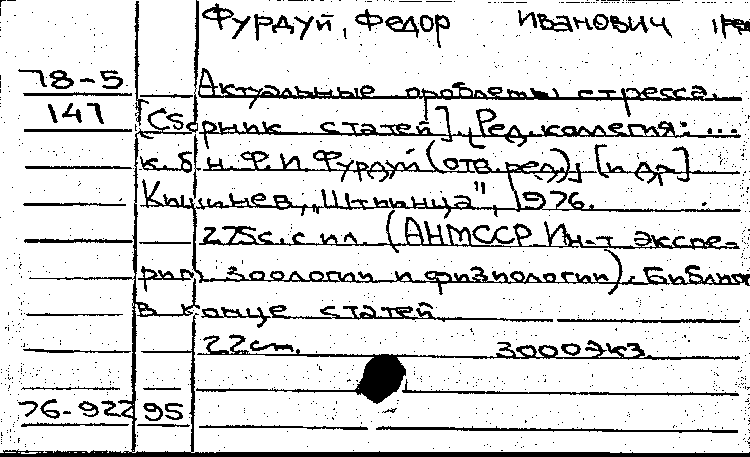 Фурдуй, Федор Иванович
78-5
Актуальные проблемы стресса.
147
[Сборник статей]. [Ред. коллегия: ...
к.б.н. Ф.И. Фурдуй (отв. ред.), [и др].
Кишинев, "Штиинца", 1976.
275с. с ил. (АНМССР. Ин-т экспе-
рим. зоологии и физиологии). Библиог
в конце статей
22см. 3000экз.
76-922 95